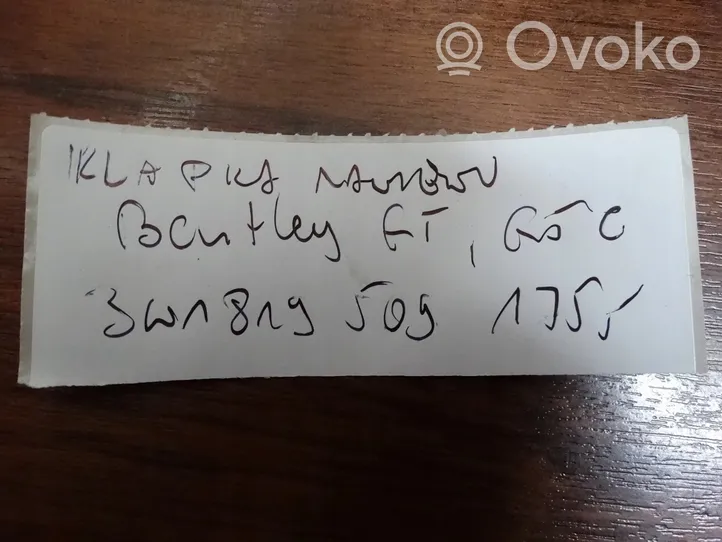 Ovoko
KLAPKA NAWIEWU
Bentley GT, GTC
3W1819509 1755